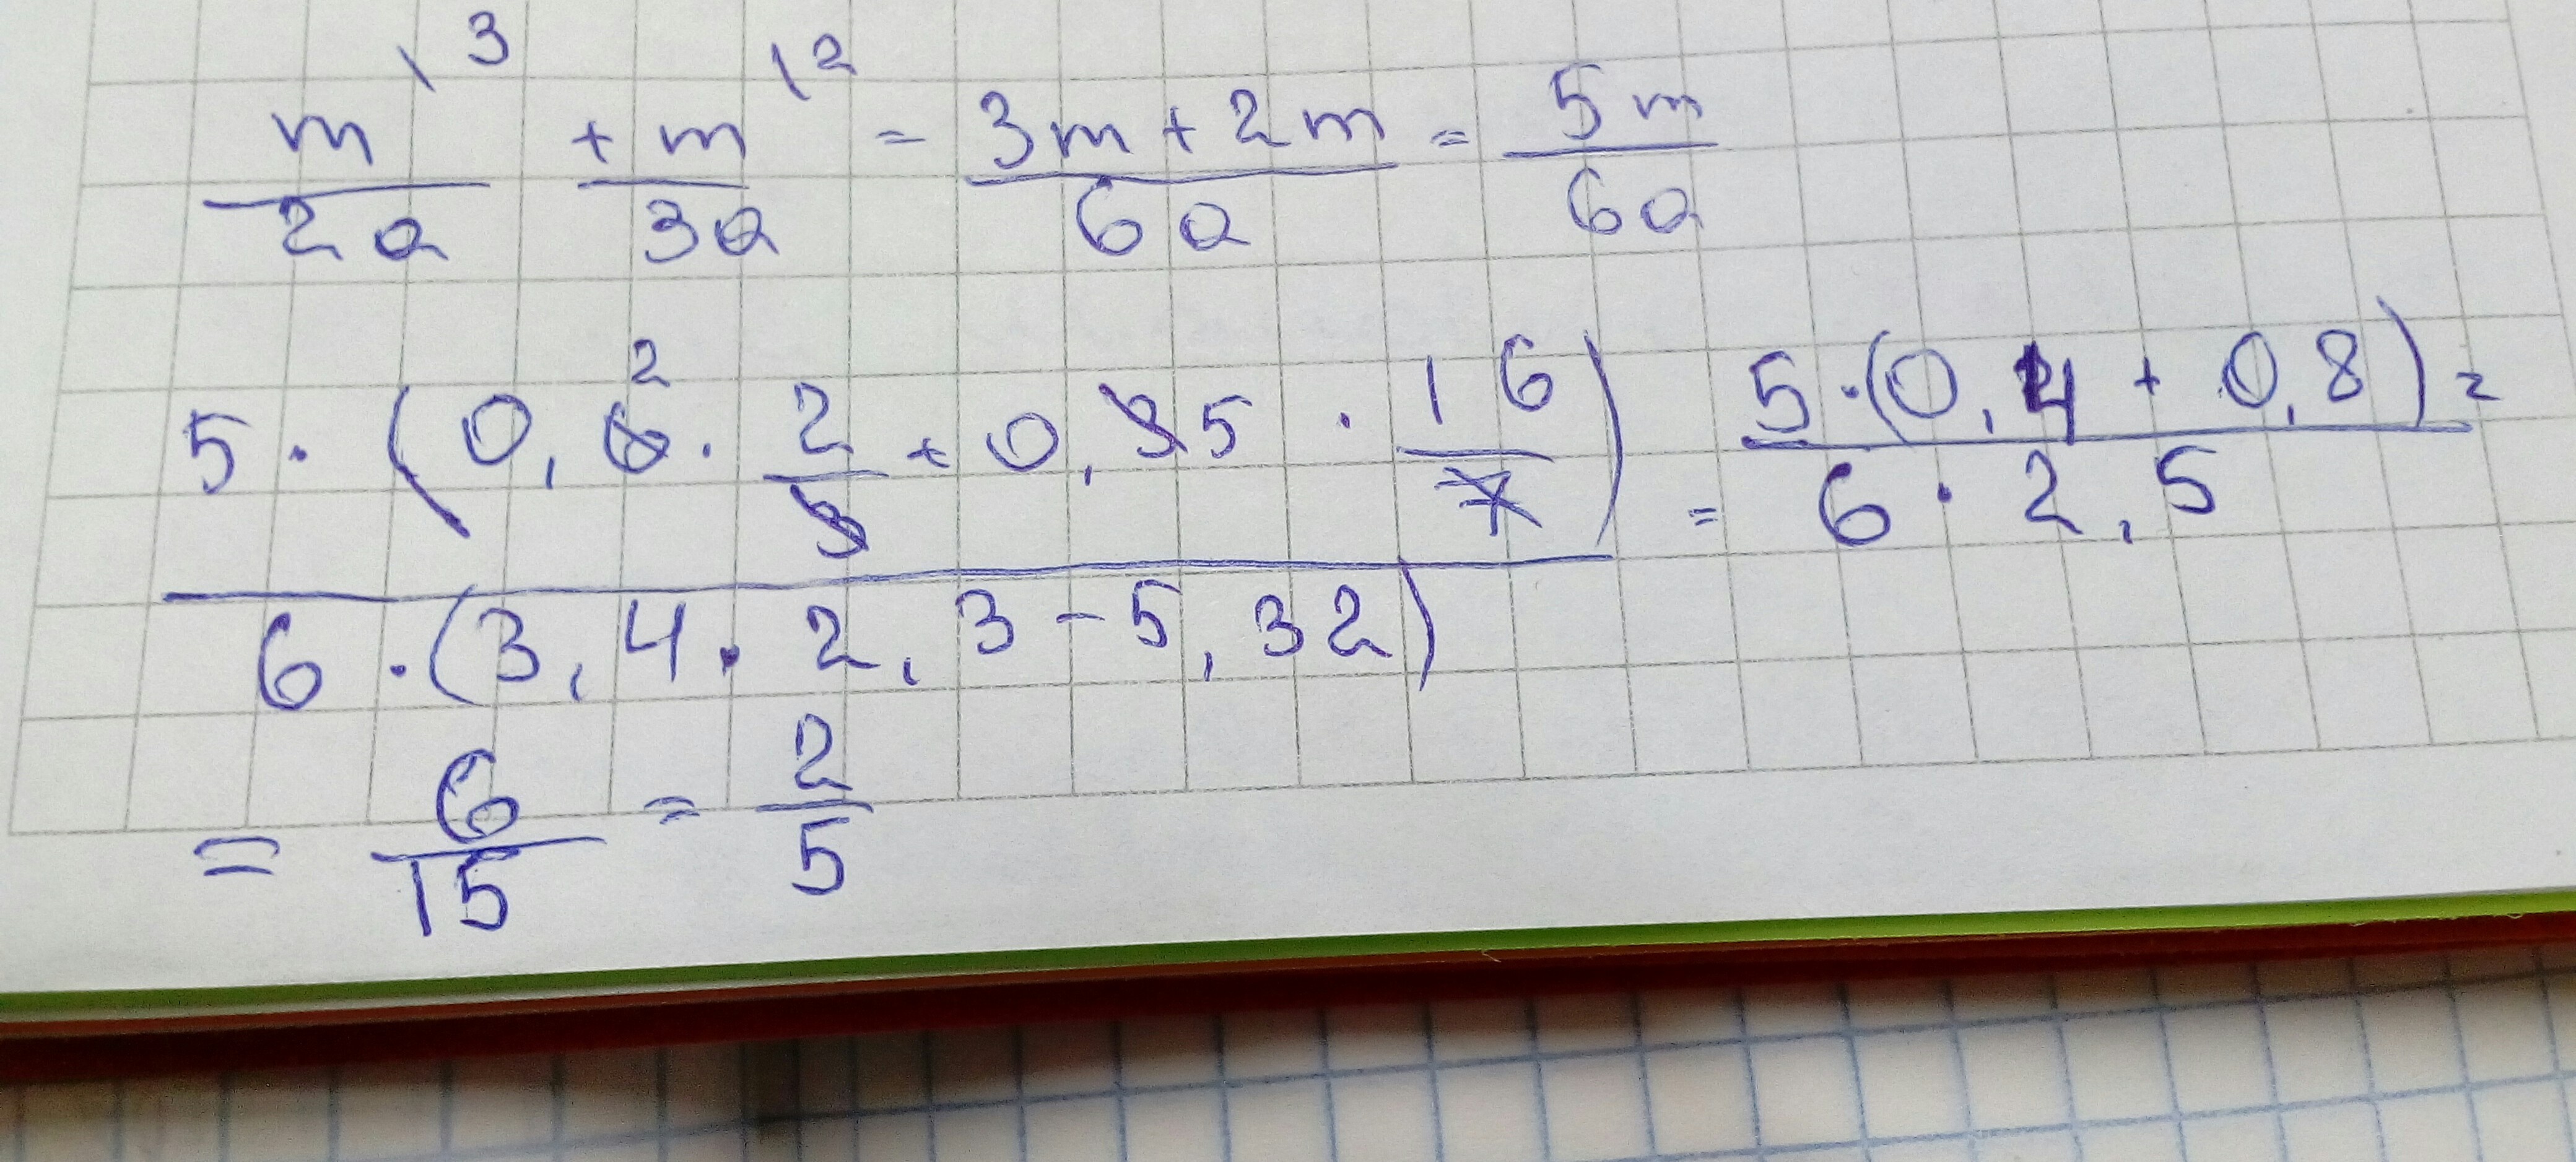 m/2a \3 + m/3a \2 = (3m + 2m)/6a = 5m/6a
(5 · (0,6 2 · 2/3 + 0,35 · 16/7))/(6 · (3,4 · 2,3 - 5,32)) = (5 · (0,4 + 0,8))/(6 · 2,5) =
= 6/15 = 2/5